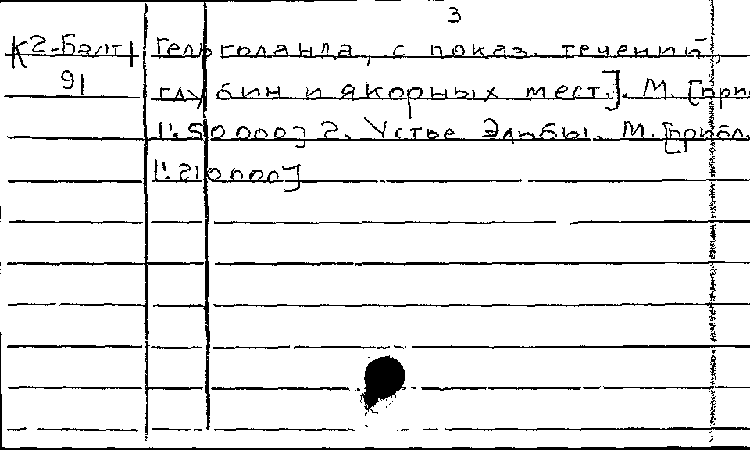 3
К2-Балт Гельголанда, с показ. течений,
91 глубин и якорных мест.]. М. [при
1:50000] 2. Устье Эльбы. М. [прибл.
1:210000]